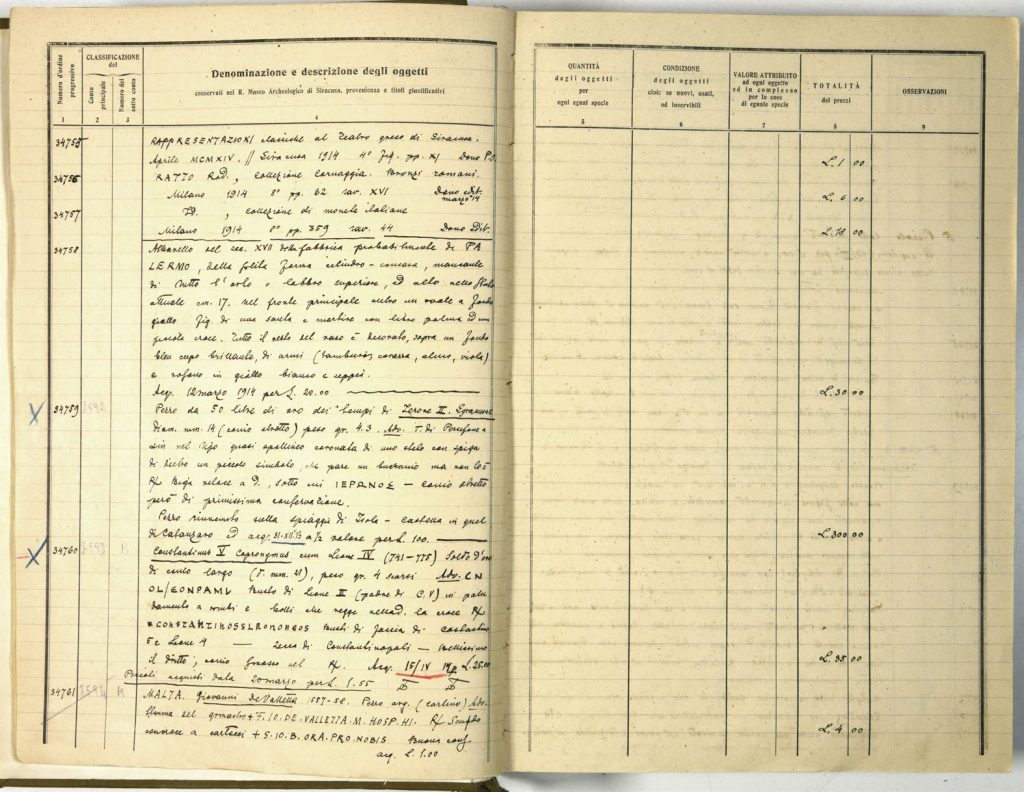 Numero d'ordine progressivo
CLASSIFICAZIONE
del
Conto principale
Numero del sotto conto
Denominazione e descrizione degli oggetti
conservati nel R. Museo Archeologico di Siracusa, provenienza e titoli giustificativi
1 2 3 4
34755 RAPPRESENTAZIONI classiche al Teatro greco di Siracusa.
Aprile MCMXIV. // Siracusa 1914 4° fig. pp. XI Dono P.O.
34756 RATTO Rod., Collezione Bronzi romani.
Milano 1914 8° pp. 62 tav. XVI Dono edit.
marzo 14
34757 Id., collezione di monete italiane
Milano 1914 8° pp. 359 tav. 44 Dono Dit.
34758 Albarello del sec. XVII della fabbrica probabilmente di PA
LERMO, della solita forma cilindro-concava, mancante
di tutto l'orlo o labbro superiore, ed alto nello stato
attuale cm. 17. nel fronte principale entro un ovale a fondo
giallo fig. di una santa e martire con libro palma ed una
piccola croce. Tutto il resto del vaso è decorato, sopra un fondo
bleu cupo brillante, di armi (tamburo, corazza, elmo, viola)
e in giallo bianco e
Acq. 12 marzo 1914 per L. 20.00
34759 2592 Pezzo da 50 litre di oro dei tempi di Ierone II. Siracusa
diam. mm. 14 (conio stretto) peso gr. 4.3. Adv. T. di Persefone a
sin nel tipo quasi apollineo coronata di uno stelo con spiga
di dietro un piccolo simbolo, che pare un bucranio ma non lo è
R/ Biga veloce a d., sotto ΙΕΡΩΝΟΣ – conio stretto
però di primissima conservazione.
Pezzo rinvenuto sulla spiaggia di Isola-Castella in quel
di Catanzaro ed acq. 31-XII-13 a ½ valore per L. 100.
34760 2593 B Constantinus V Copronymus cum Leone IV (741-775) Soldo d'oro
di conio largo (D. mm. 21), peso gr. 4 scarsi Adv. CN
OL/EONPAMU Busto di Leone III (padre di C. V) in palu
damento a rombi e che regge nella d. la croce R/
Busti di faccia di Costantino
5 e Leone 4 – Zecca di Constantinopoli – Bellissimo
il dritto; conio nel R/. Acq. 15/IV 14 p L. 25.00
Piccoli acquisti dal 20 marzo per L. 1.55
34761 2594 A MALTA. Giovanni de Valletta 1557-58. Pezzo arg. (carlino) Adv.
Stemma del gr maestro + F. IO. DE. VALLETTA. M. HOSP. HI. R/ Scudo
a cartocci + S. IO. B. ORA. PRO. NOBIS Buona cons.
acq. L. 1.00
QUANTITÀ
degli oggetti
per
ogni egual specie
CONDIZIONE
degli oggetti
cioè: se nuovi, usati,
od inservibili
VALORE ATTRIBUITO
ad ogni oggetto
ed in complesso
per le cose
di eguale specie
TOTALITÀ
dei prezzi
OSSERVAZIONI
5 6 7 8 9
L. 1 00
L. 6 00
L. 18 00
L. 30 00
L. 300 00
L. 35 00
L. 4 00